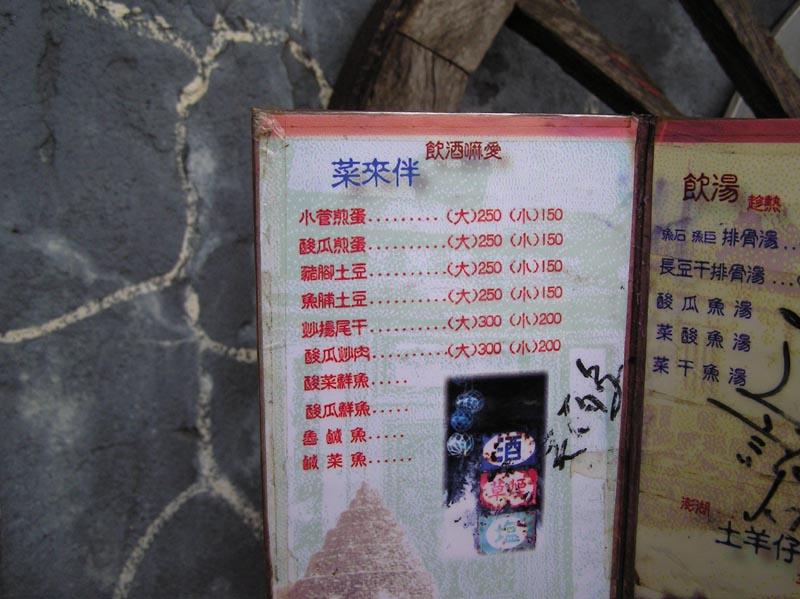 飲酒嘛愛
菜來伴
小管煎蛋.........(大)250 (小)150
酸瓜煎蛋.........(大)250 (小)150
豬腳土豆.........(大)250 (小)150
魚脯土豆.........(大)250 (小)150
炒揚尾干.........(大)300 (小)200
酸瓜炒肉.........(大)300 (小)200
酸菜鮮魚.....
酸瓜鮮魚.....
魯鹹魚.....
鹹菜魚......
酒
草煙
塩
飲湯 趁熱
魚石 魚巨 排骨湯...
長豆干排骨湯...
酸瓜魚湯
菜酸魚湯
菜干魚湯
澎湖
土羊仔